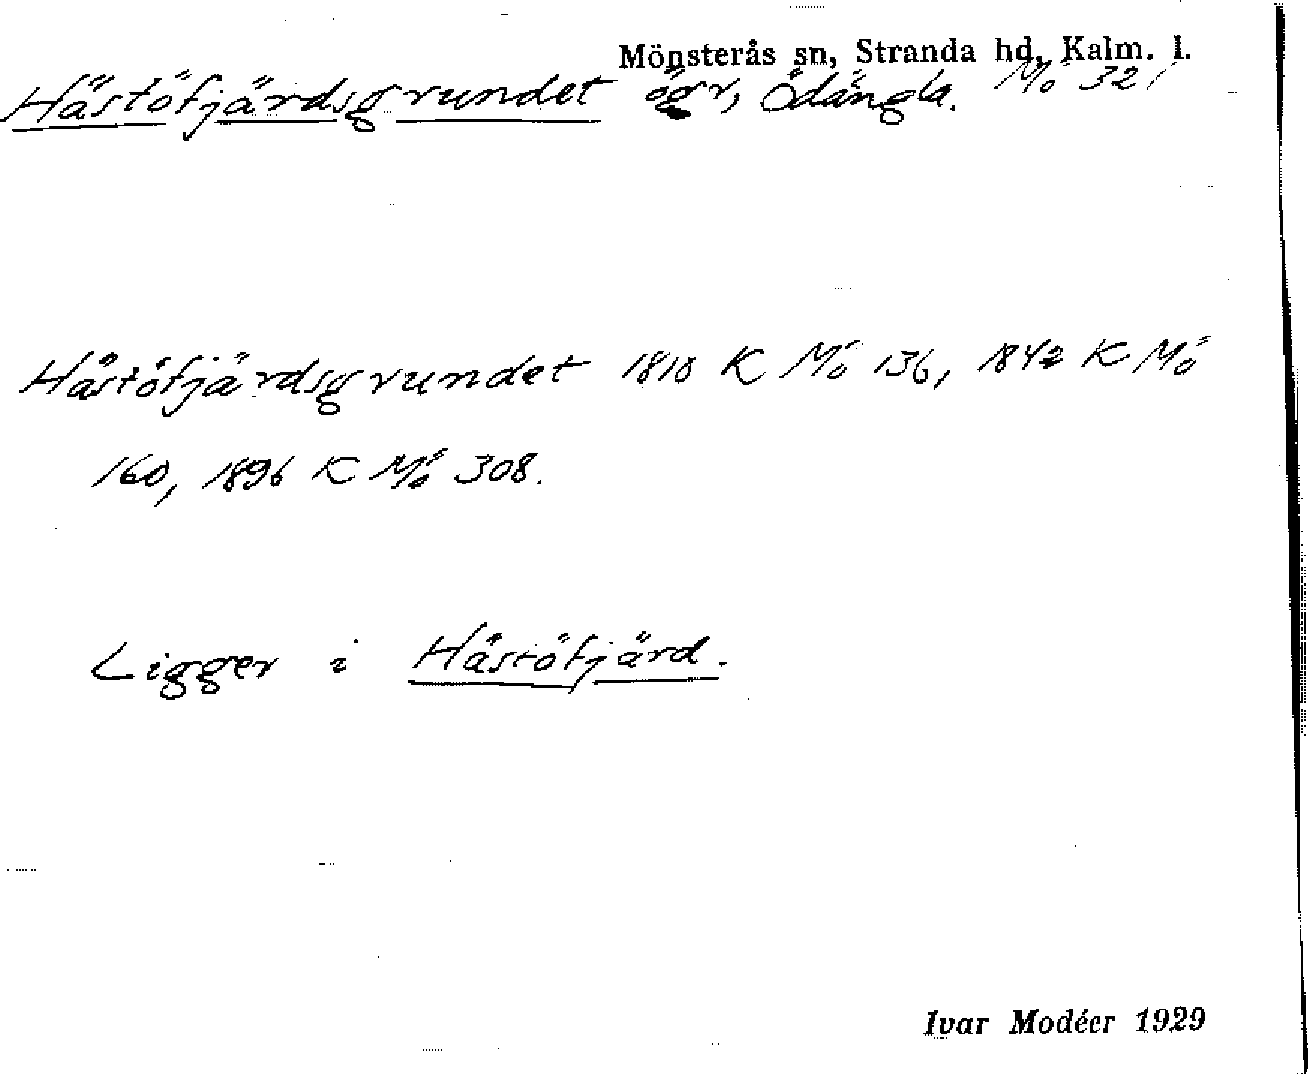 Mönsterås sn, Stranda hd, Kalm. l.
Hästöfjärdsgrundet ögr, Ödängla. Mö 321
Hästöfjärdsgrundet 1810 K Mö 136, 1842 K Mö
160, 1896 K Mö 308.
Ligger i Hästöfjärd.
Ivar Modéer 1929